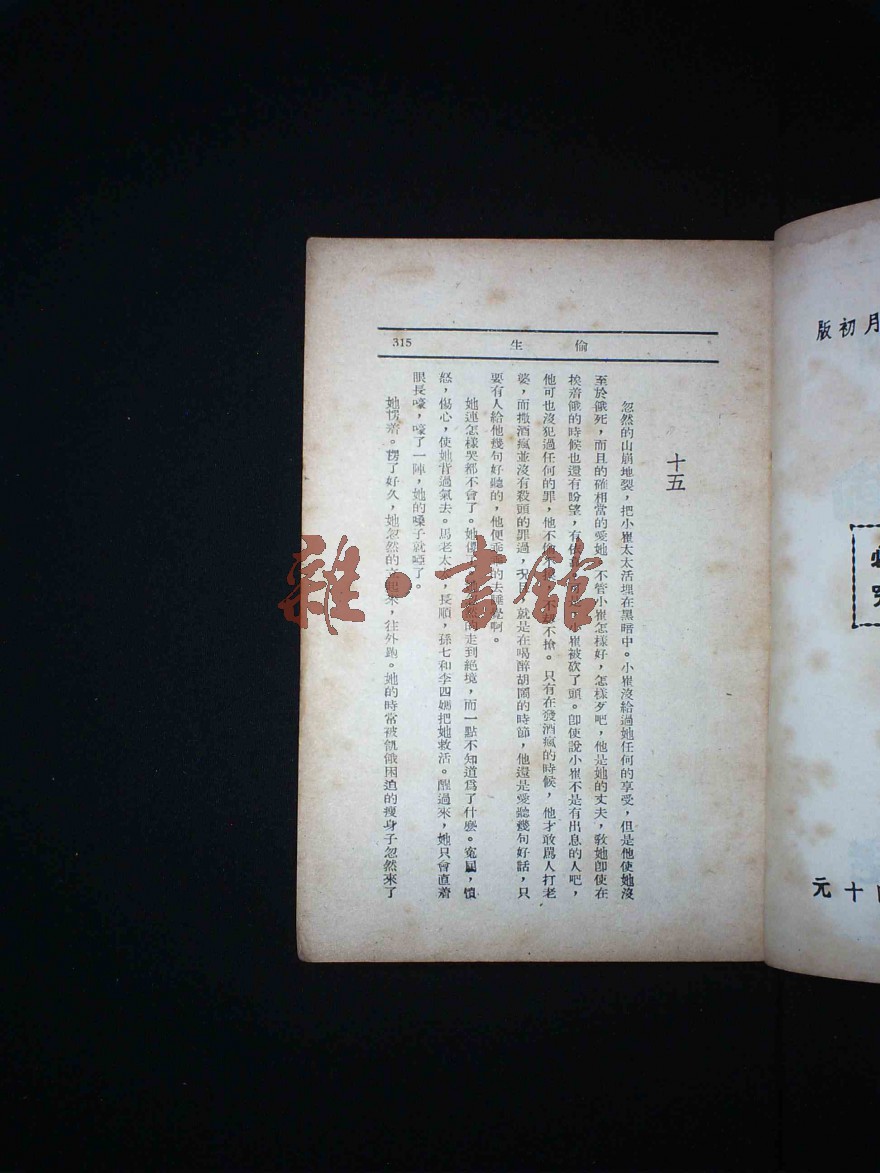 315
偷生
十五
忽然的山崩地裂，把小崔太太活埋在黑暗中。小崔沒給過她任何的享受，但是他使她沒
至於餓死，而且的確相當的愛她。不管小崔怎樣好，怎樣歹吧，他是她的丈夫，敎她卽使在
挨着餓的時候也還有盼望，有依 小崔被砍了頭。卽使說小崔不是有出息的人吧，
他可也沒犯過任何的罪，他不偷不 不搶。只有在發酒瘋的時候，他才敢罵人打老
婆，而撒酒瘋並沒有殺頭的罪過，况且，就是在喝醉胡鬧的時節，他還是愛聽幾句好話，只
要有人給他幾句好聽的，他便乖乖的去睡覺啊。
她連怎樣哭都不會了。她傻了。 的走到絕境，而一點不知道爲了什麼。寃屈，憤
怒，傷心，使她背過氣去。馬老太太，長順，孫七和李四媽把她救活。醒過來，她只會直着
眼長嚎，嚎了一陣，她的嗓子就啞了。
她愣着。愣了好久，她忽然的立起來，往外跑。她的時常被飢餓困迫的瘦身子忽然來了
雜·書館
月初版
十元